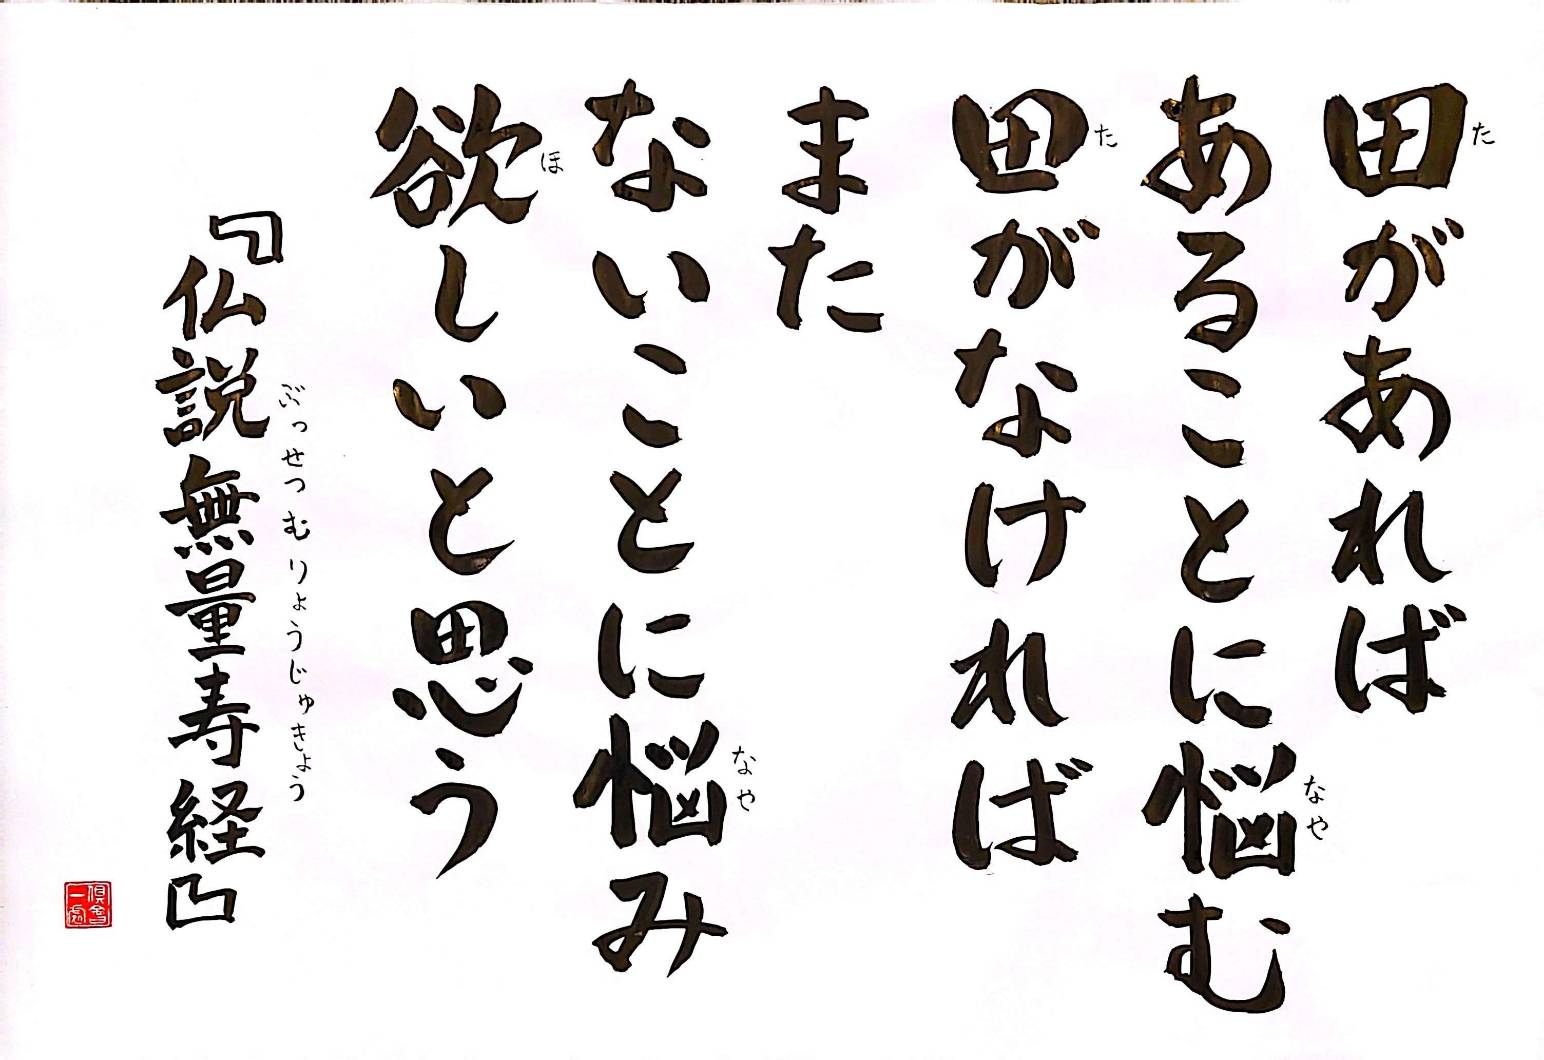 田があれば
た
あることに悩む
なや
田がなければ
た
また
ないことに悩み
なや
欲しいと思う
ほ
『仏説無量寿経』
ぶっせつむりょうじゅきょう
倶會一處